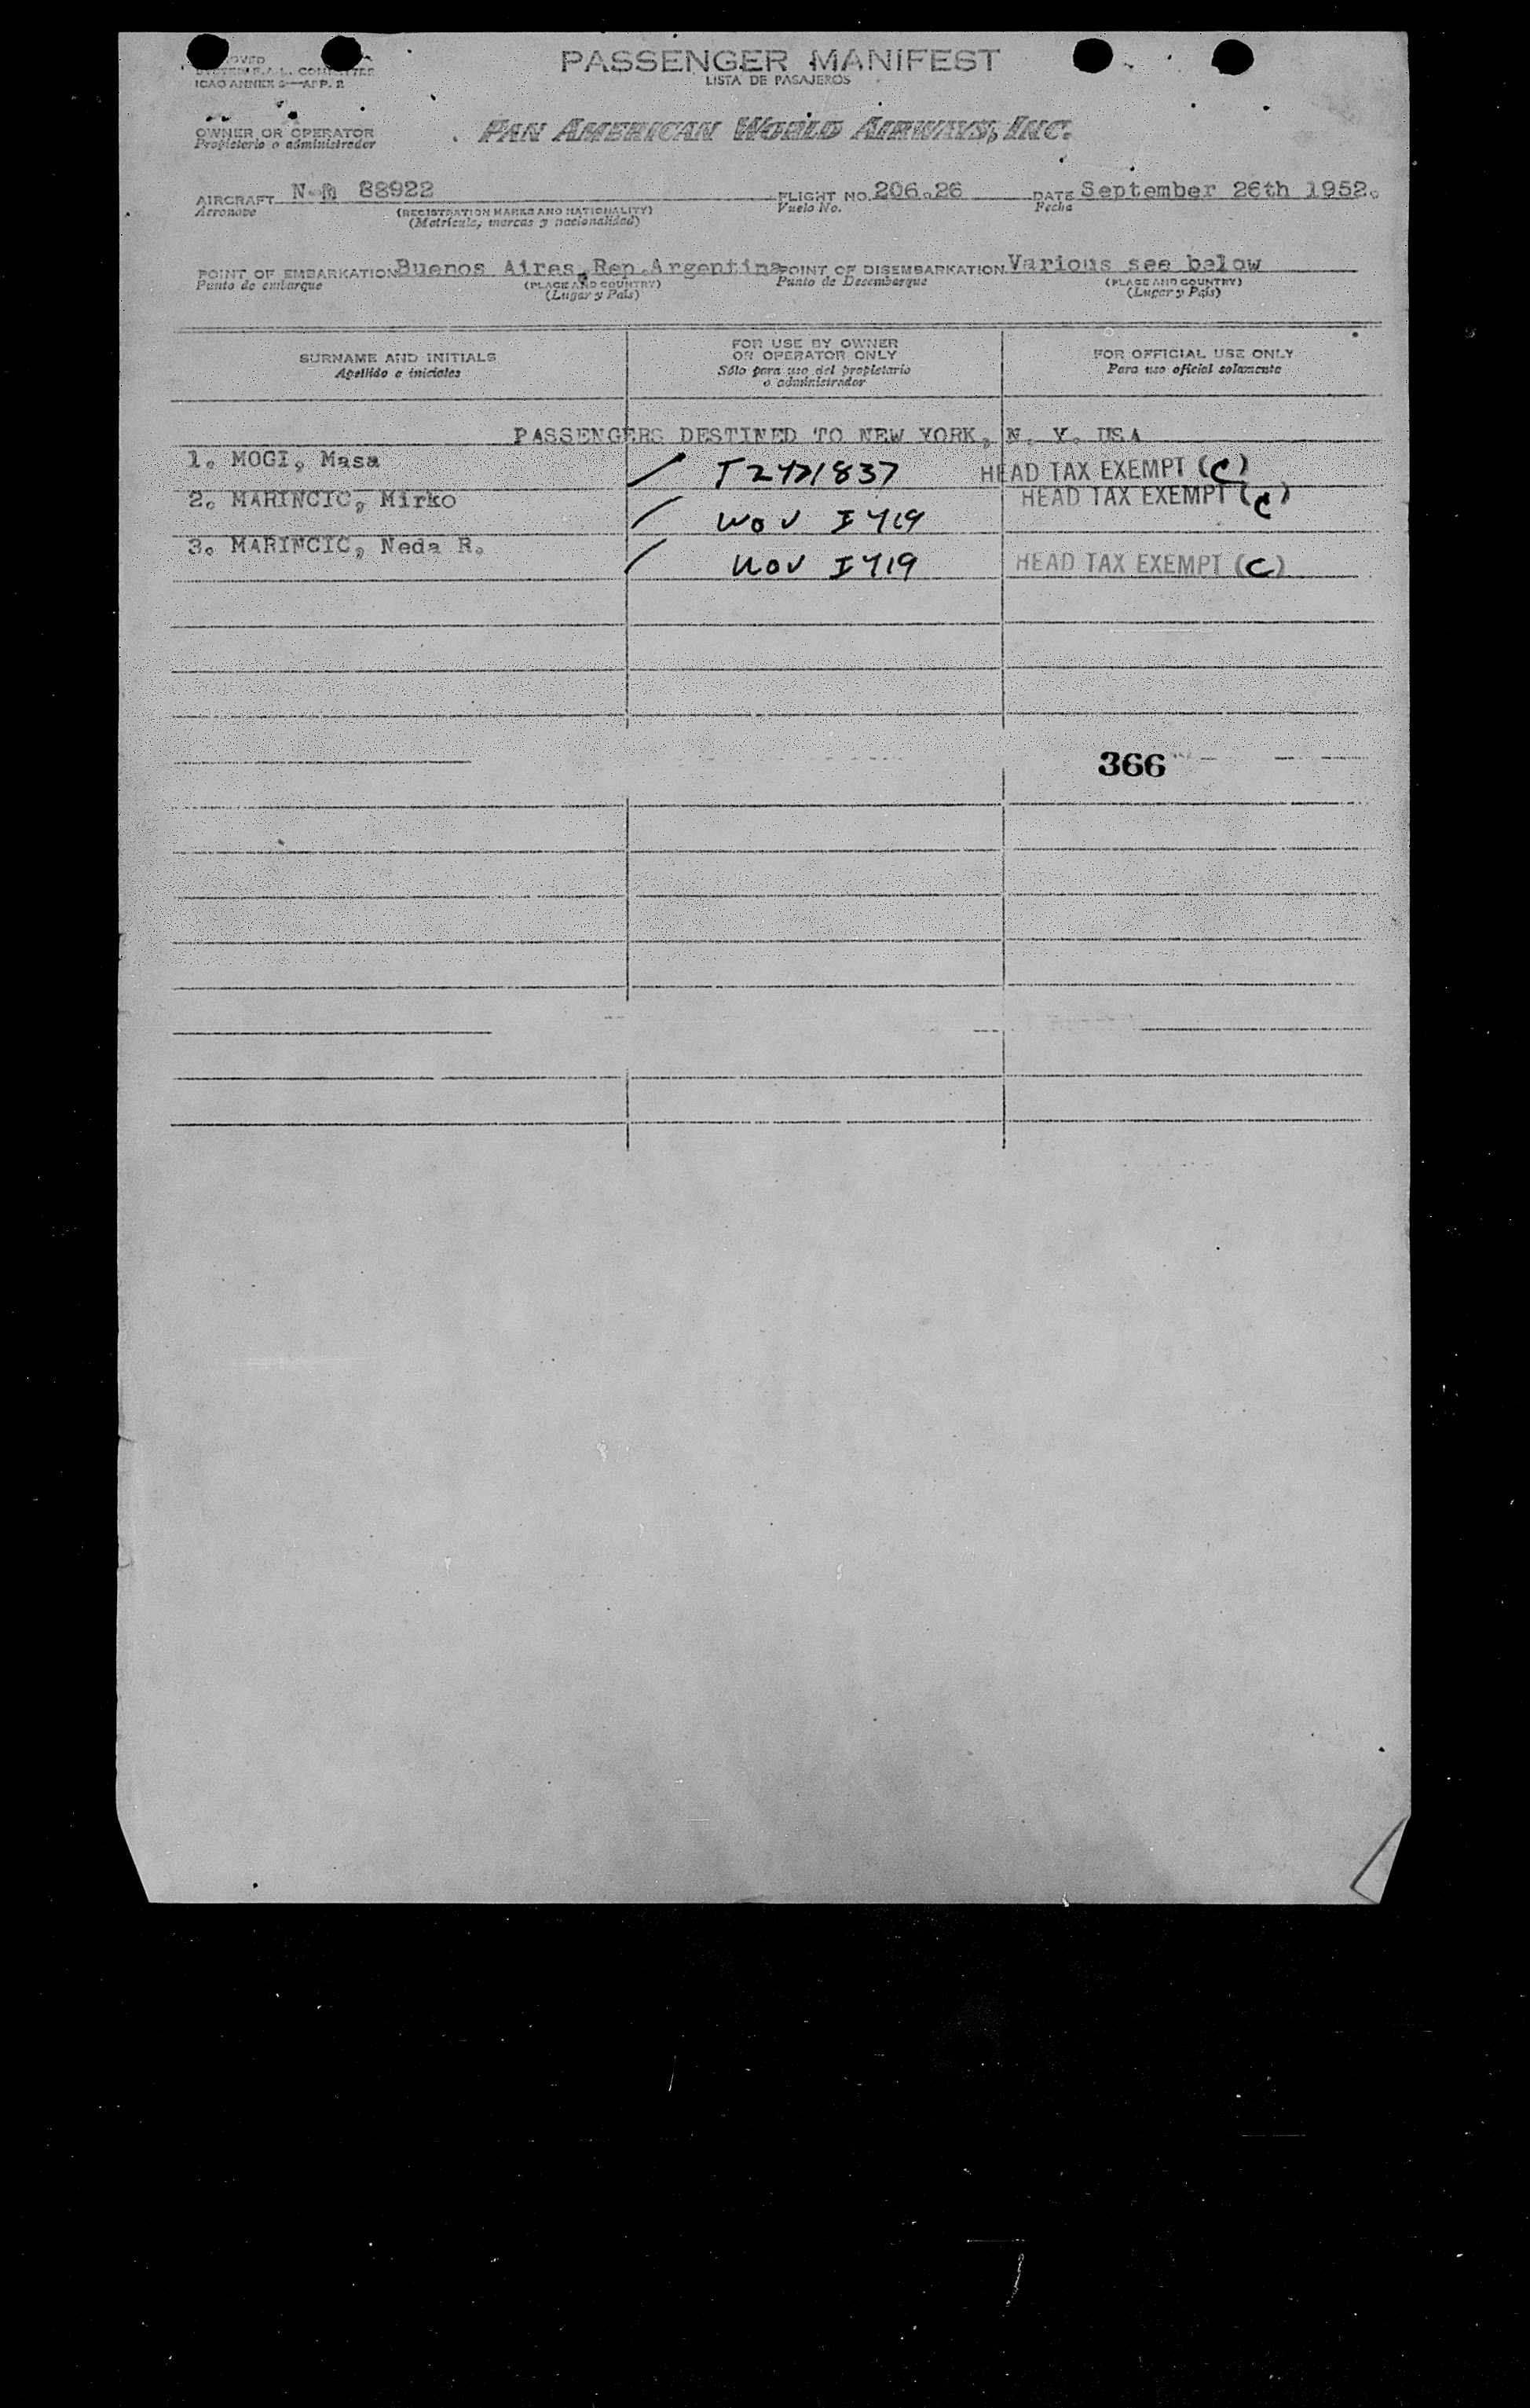 PASSENGER MANIFEST
LISTA DE PASAJEROS
ICAO ANNEX 9—APP. 2
OWNER OR OPERATOR
Propietario o administrador
PAN AMERICAN WORLD AIRWAYS, INC.
AIRCRAFT N 88922 FLIGHT NO. 206.26 DATE September 26th 1952.
Aeronave (REGISTRATION MARKS AND NATIONALITY) Vuelo No. Fecha
(Matrícula, marcas y nacionalidad)
POINT OF EMBARKATION Buenos Aires, Rep. Argentina POINT OF DISEMBARKATION Various see below
Punto de embarque (PLACE AND COUNTRY) Punto de Desembarque (PLACE AND COUNTRY)
(Lugar y País) (Lugar y País)
SURNAME AND INITIALS
Apellido e iniciales
FOR USE BY OWNER
OR OPERATOR ONLY
Sólo para uso del propietario
o administrador
FOR OFFICIAL USE ONLY
Para uso oficial solamente
PASSENGERS DESTINED TO NEW YORK, N. Y. USA
1. MOGI, Masa HEAD TAX EXEMPT (C)
2. MARINCIC, Mirko HEAD TAX EXEMPT (C)
3. MARINCIC, Neda R. HEAD TAX EXEMPT (C)
366